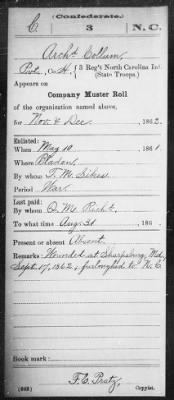 (Confederate.)
C. 3 N.C.
Archd Collum,
Pvt., Co. H, 3 Reg't North Carolina Inf.
(State Troops.)
Appears on
Company Muster Roll
of the organization named above,
for Nov. & Dec., 1862.
Enlisted:
When May 10, 1861.
Where Bladen
By whom T. M. Sikes
Period War
Last paid:
By whom Q. M. Richt.
To what time Aug. 31, 186
Present or absent Absent.
Remarks: Wounded at Sharpsburg, Md,
Sept. 17, 1862, & furloughed to N. C.
Book mark:
(642) F. C. Pratz, Copyist.